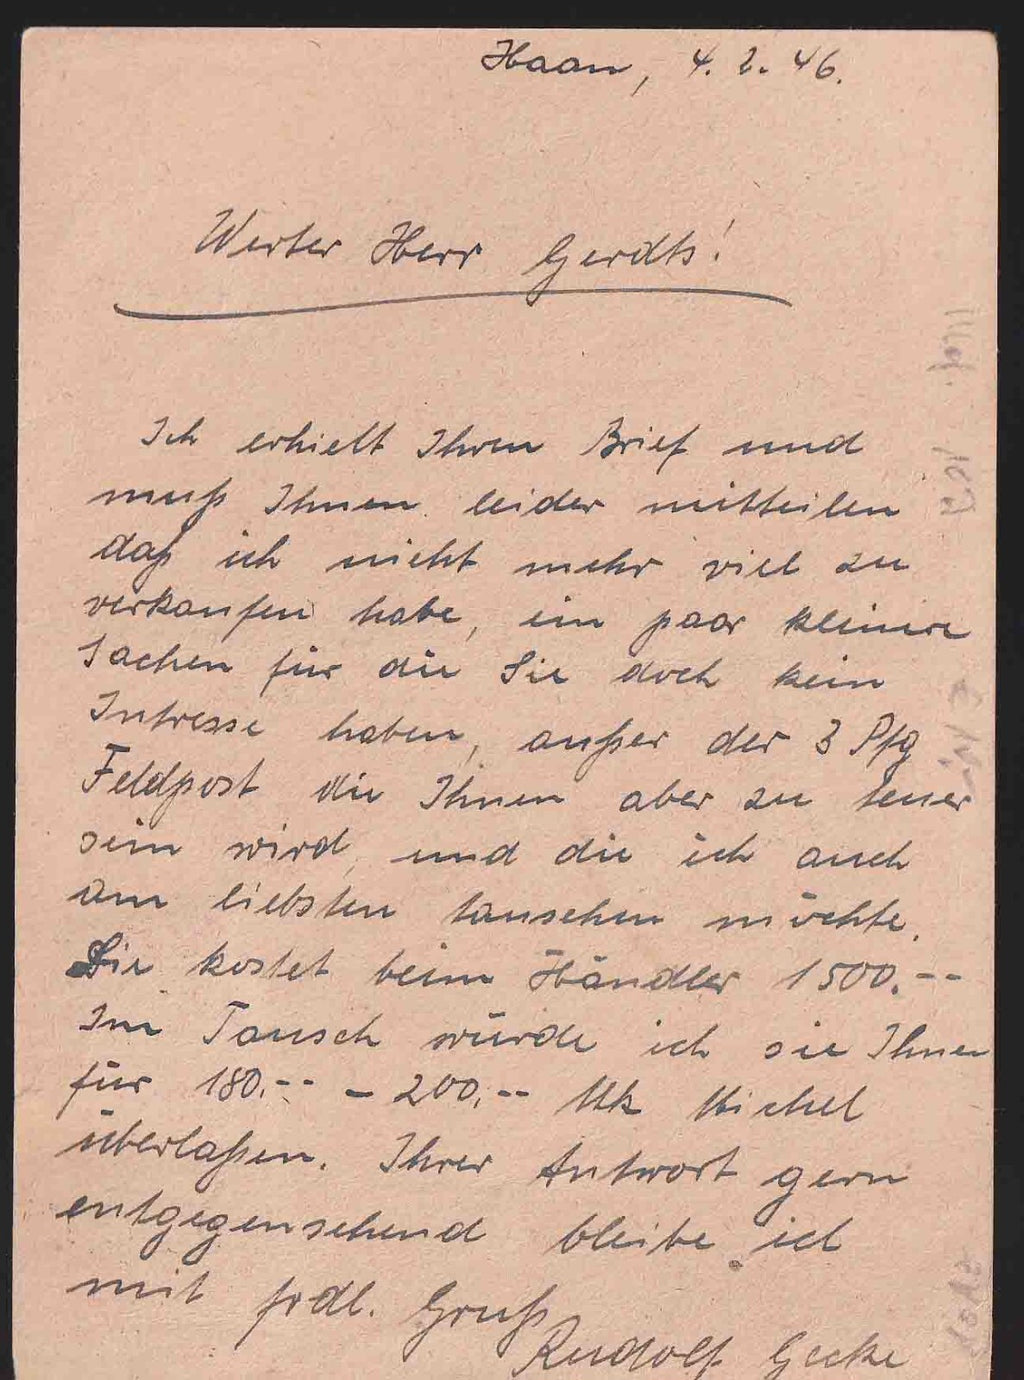 Haan, 4. 2. 46.
Werter Herr Gerdts!
Ich erhielt Ihren Brief und
muß Ihnen leider mitteilen
daß ich nicht mehr viel zu
verkaufen habe, ein paar kleinere
Sachen für die Sie doch kein
Intresse haben, außer der 3 Pfg
Feldpost die Ihnen aber zu teuer
sein wird, und die ich auch
am liebsten tauschen möchte.
Sie kostet beim Händler 1500.--
Im Tausch würde ich sie Ihnen
für 180.-- – 200.-- Mk Michel
überlaßen. Ihrer Antwort gern
entgegensehend bleibe ich
mit frdl. Gruß
Rudolf Gecke